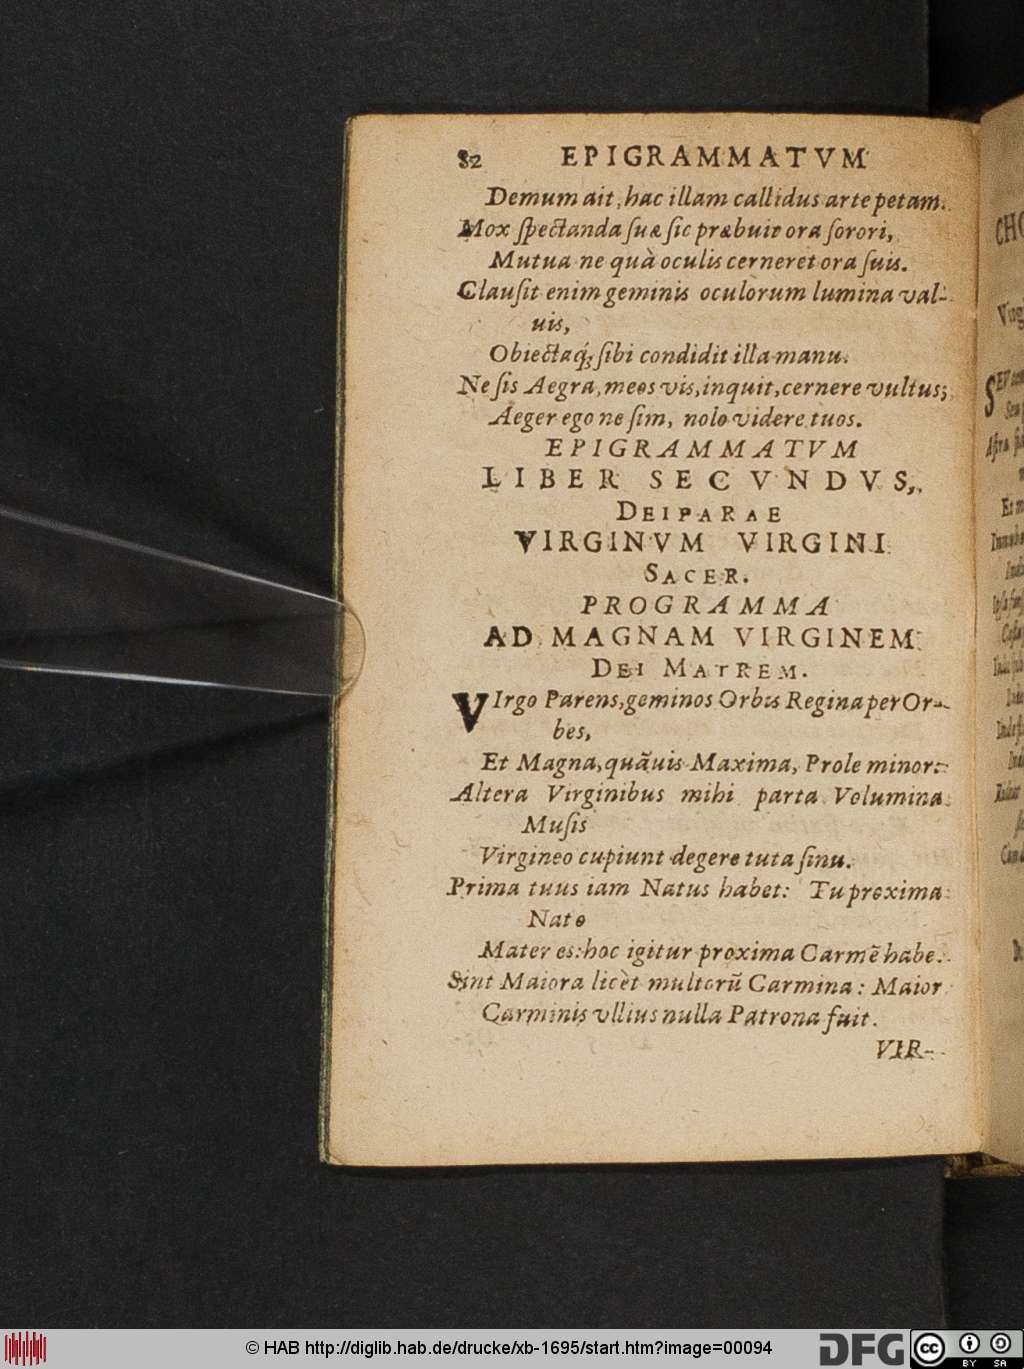 82 EPIGRAMMATVM
Demum ait, hac illam callidus arte petam.
Mox ſpectanda ſuæ ſic præbuit ora ſorori,
Mutua ne quà oculis cerneret ora ſuis.
Clauſit enim geminis oculorum lumina val-
uis,
Obiectaq́; ſibi condidit illa manu.
Ne ſis Aegra, meos vis, inquit, cernere vultus;
Aeger ego ne ſim, nolo videre tuos.
EPIGRAMMATVM
LIBER SECVNDVS,
DEIPARAE
VIRGINVM VIRGINI
SACER.
PROGRAMMA
AD MAGNAM VIRGINEM
DEI MATREM.
VIrgo Parens, geminos Orbis Regina per Or-
bes,
Et Magna, quãuis Maxima, Prole minor:
Altera Virginibus mihi parta Volumina
Muſis
Virgineo cupiunt degere tuta ſinu.
Prima tuus iam Natus habet: Tu proxima
Nato
Mater es: hoc igitur proxima Carmẽ habe.
Sint Maiora licèt multorũ Carmina: Maior
Carminis vllius nulla Patrona fuit.
VIR-
© HAB http://diglib.hab.de/drucke/xb-1695/start.htm?image=00094
DFG
cc
BY SA